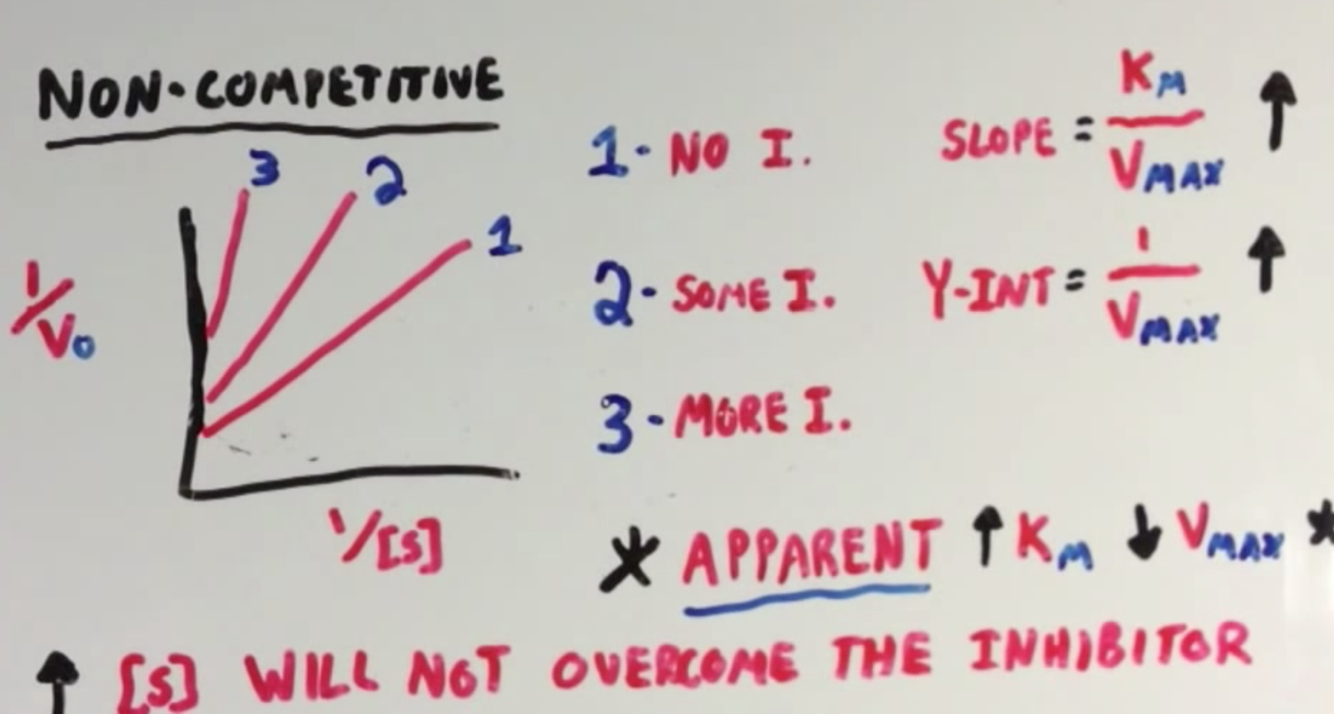 NON-COMPETITIVE
3
2
1
1/V0
1/[S]
1- NO I.
2- SOME I.
3- MORE I.
SLOPE = KM/VMAX ↑
Y-INT = 1/VMAX ↑
* APPARENT ↑ KM ↓ VMAX *
↑ [S] WILL NOT OVERCOME THE INHIBITOR